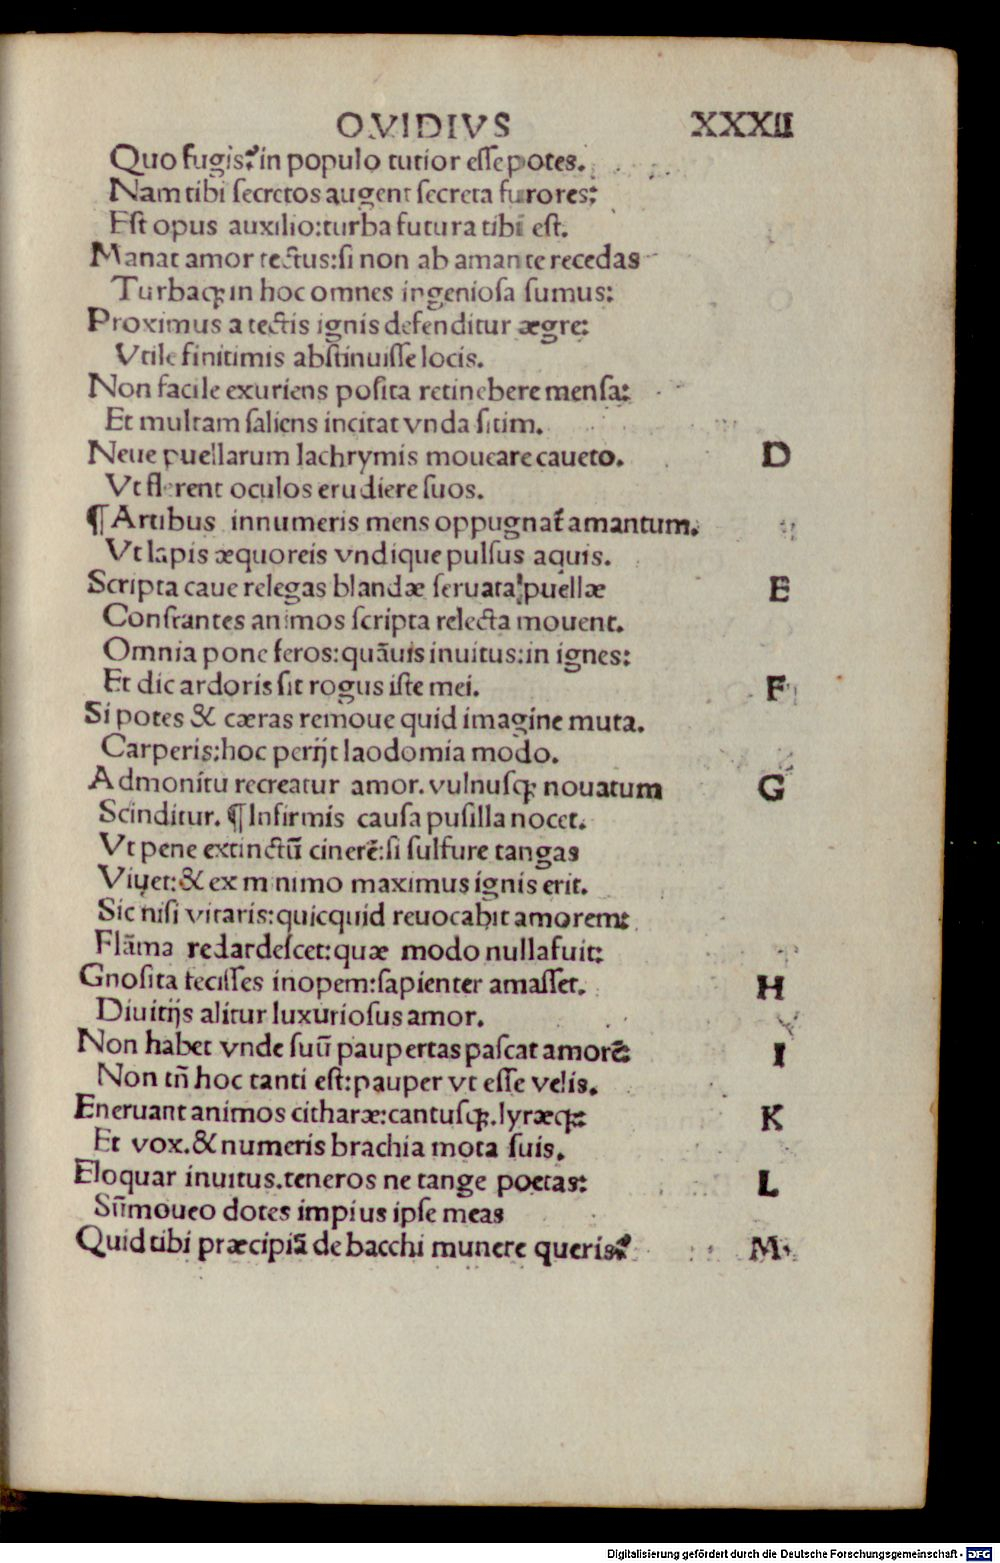 OVIDIVS XXXII
Quo fugis? in populo tutior eſſe potes.
Nam tibi ſecretos augent ſecreta furores:
Eſt opus auxilio: turba futura tibi eſt.
Manat amor tectus: ſi non ab amante recedas
Turbaqꝫ in hoc omnes ingenioſa ſumus:
Proximus a tectis ignis defenditur ægre:
Vtile finitimis abſtinuiſſe locis.
Non facile exuriens poſita retinebere menſa:
Et multam ſaliens incitat vnda ſitim.
Neue puellarum lachrymis moueare caueto. D
Vt flerent oculos erudiere ſuos.
¶ Artibus innumeris mens oppugnat̃ amantum.
Vt lapis æquoreis vndique pulſus aquis.
Scripta caue relegas blandæ ſeruata puellæ E
Conſtantes animos ſcripta relecta mouent.
Omnia pone feros: quãuis inuitus: in ignes:
Et dic ardoris ſit rogus iſte mei. F
Si potes & cæras remoue quid imagine muta.
Carperis: hoc perijt laodomia modo.
Admonitu recreatur amor. vulnuſqꝫ nouatum G
Scinditur. ¶ Infirmis cauſa puſilla nocet.
Vt pene extinctũ cinerẽ: ſi ſulfure tangas
Viuet: & ex minimo maximus ignis erit.
Sic niſi vitaris: quicquid reuocabit amorem:
Flãma redardeſcet: quæ modo nulla fuit:
Gnoſita feciſſes inopem: ſapienter amaſſet. H
Diuitijs alitur luxurioſus amor.
Non habet vnde ſuũ paupertas paſcat amorẽ: I
Non tñ hoc tanti eſt: pauper vt eſſe velis.
Eneruant animos citharæ: cantuſqꝫ. lyræqꝫ: K
Et vox. & numeris brachia mota ſuis.
Eloquar inuitus. teneros ne tange poetas: L
Sũmoueo dotes impius ipſe meas
Quid tibi præcipiã de bacchi munere queris? M
Digitalisierung gefördert durch die Deutsche Forschungsgemeinschaft - DFG